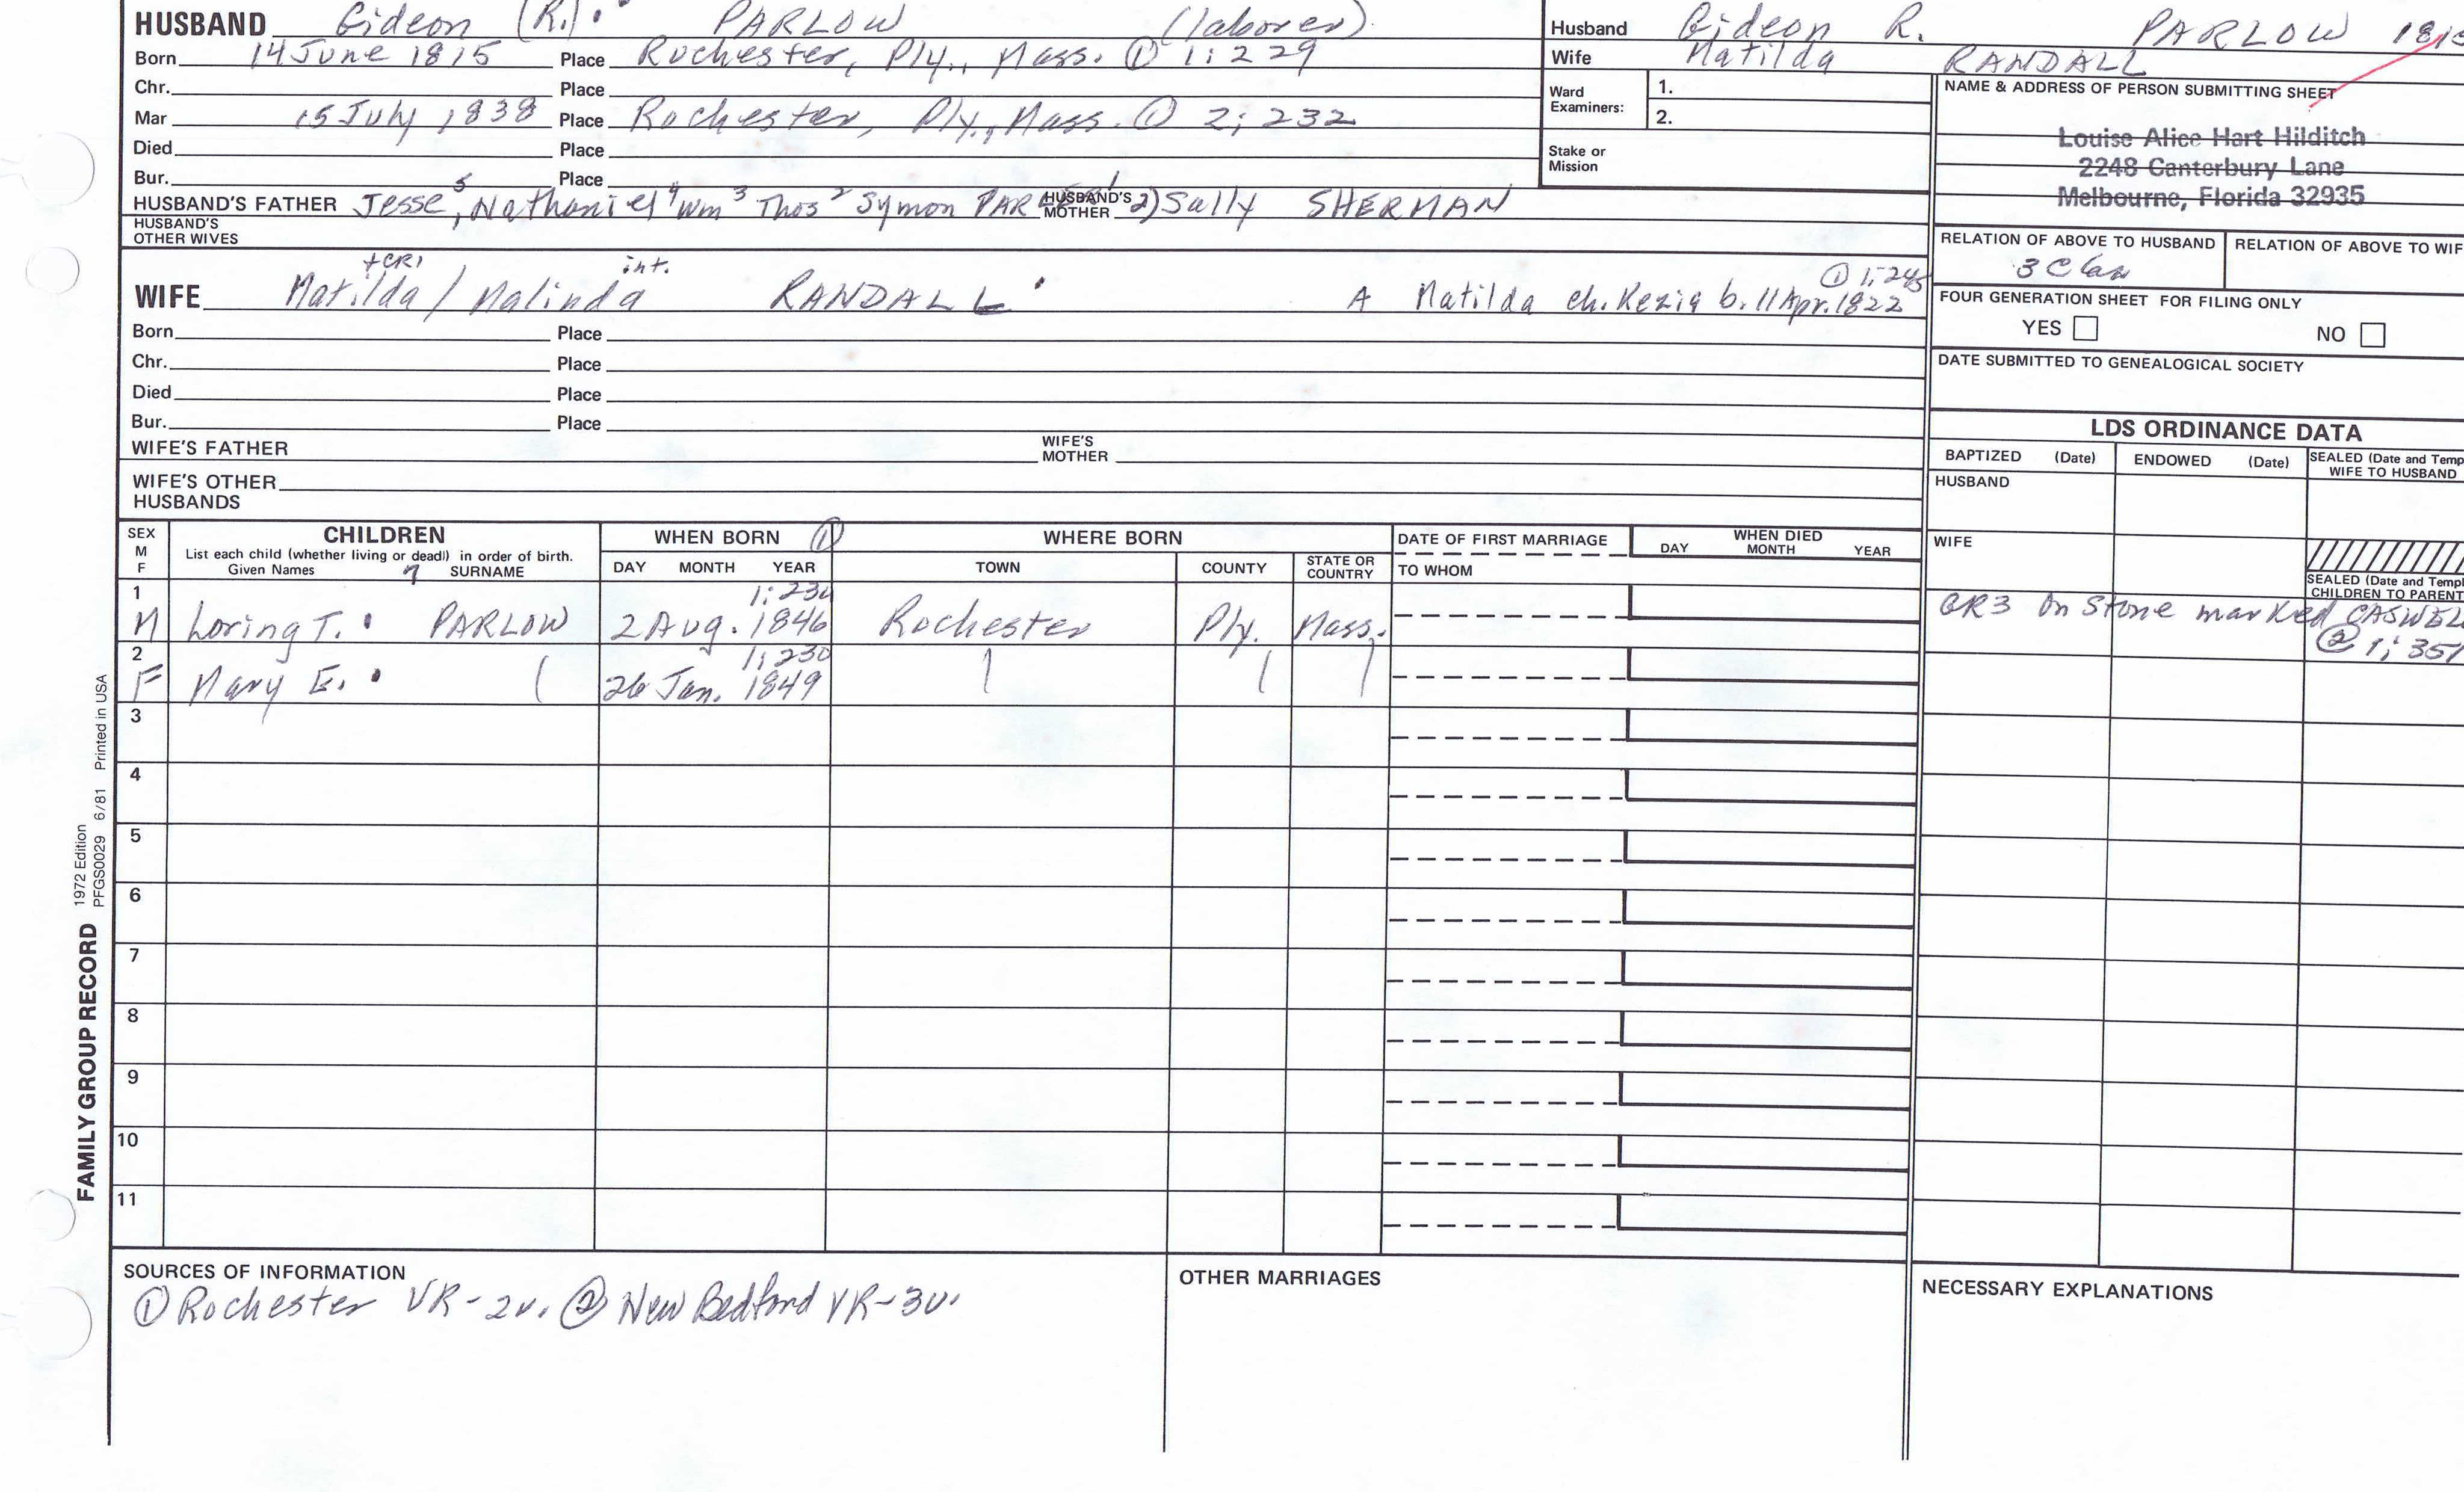 HUSBAND Gideon (R.) PARLOW (laborer)
Born 14 June 1815 Place Rochester, Ply., Mass. ① 1:229
Chr. Place
Mar 15 July 1838 Place Rochester, Ply., Mass. ① 2:232
Died Place
Bur. Place
HUSBAND'S FATHER Jesse 5, Nathaniel 4 Wm 3 Thos 2 Symon 1 HUSBAND'S MOTHER 2) Sally SHERMAN
HUSBAND'S OTHER WIVES
Husband Gideon R. PARLOW
Wife Matilda RANDALL
Ward Examiners: 1.
2.
Stake or Mission
NAME & ADDRESS OF PERSON SUBMITTING SHEET
Louise Alice Hart Hilditch
2248 Canterbury Lane
Melbourne, Florida 32935
RELATION OF ABOVE TO HUSBAND RELATION OF ABOVE TO WIF
FOUR GENERATION SHEET FOR FILING ONLY
YES NO
DATE SUBMITTED TO GENEALOGICAL SOCIETY
+CR1 int. ① 1:245
WIFE Matilda / Malinda RANDALL A Matilda ch. Kezia b. 11 Apr. 1822
Born Place
Chr. Place
Died Place
Bur. Place
WIFE'S FATHER WIFE'S MOTHER
WIFE'S OTHER HUSBANDS
LDS ORDINANCE DATA
BAPTIZED (Date) ENDOWED (Date) SEALED (Date and Temp
WIFE TO HUSBAND
HUSBAND
WIFE
SEALED (Date and Templ
CHILDREN TO PARENT
SEX M F CHILDREN WHEN BORN ① WHERE BORN DATE OF FIRST MARRIAGE WHEN DIED
List each child (whether living or dead) in order of birth.
Given Names 7 SURNAME DAY MONTH YEAR TOWN COUNTY STATE OR COUNTRY TO WHOM DAY MONTH YEAR
1 1:230
M Loring T. PARLOW 2 Aug. 1846 Rochester Ply. Mass. GR3 on stone marked CASWEL
② 1:351
2 1:230
F Mary E. 26 Jan. 1849
3
4
5
6
7
8
9
10
11
SOURCES OF INFORMATION
① Rochester VR-2v. ② New Bedford VR-3v.
OTHER MARRIAGES
NECESSARY EXPLANATIONS
FAMILY GROUP RECORD 1972 Edition
PFGS0029 6/81 Printed in USA